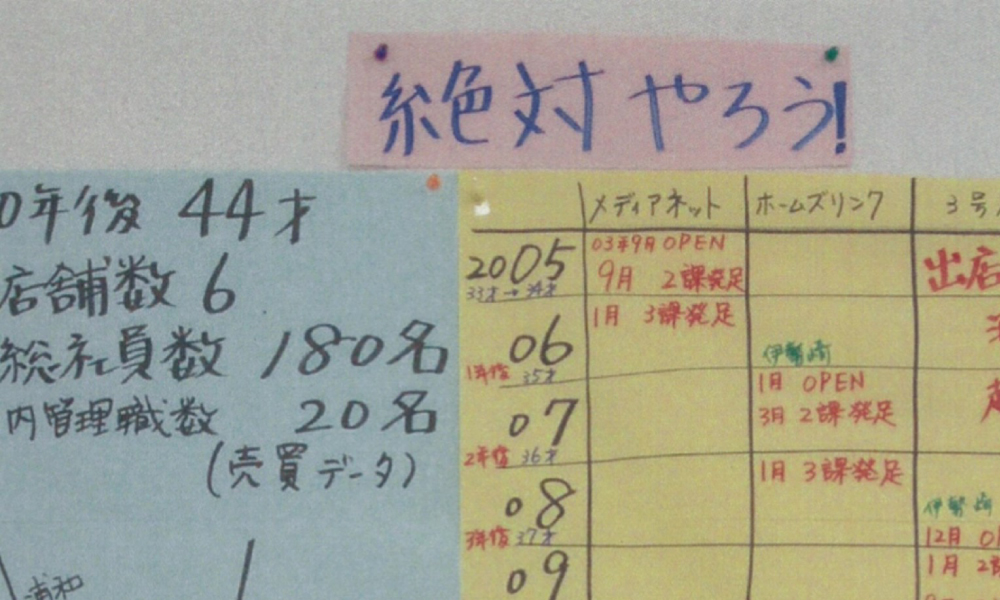 絶対やろう!
0年後 44才
店舗数 6
総社員数 180名
内管理職数 20名
(売買データ)
浦和
メディアネット ホームズリンク 3号
2005 03年9月OPEN
33才→34才 9月 2課発足 出店
06 1月 3課発足
1年後 35才 伊勢崎
07 1月 OPEN
3月 2課発足
2年後 36才
08 1月 3課発足
伊勢崎
3年後 37才 12月
09 1月